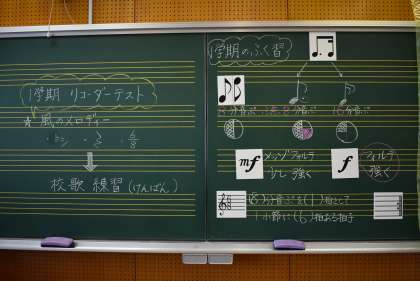 1学期 リコーダーテスト
☆風のメロディー
校歌 練習(けんばん)
1学期のふく習
16分音ぷ
mf メッゾフォルテ
少し 強く
f フォルテ
強く
(8)分音ぷを(1)拍として
1小節に(6)拍ある拍子